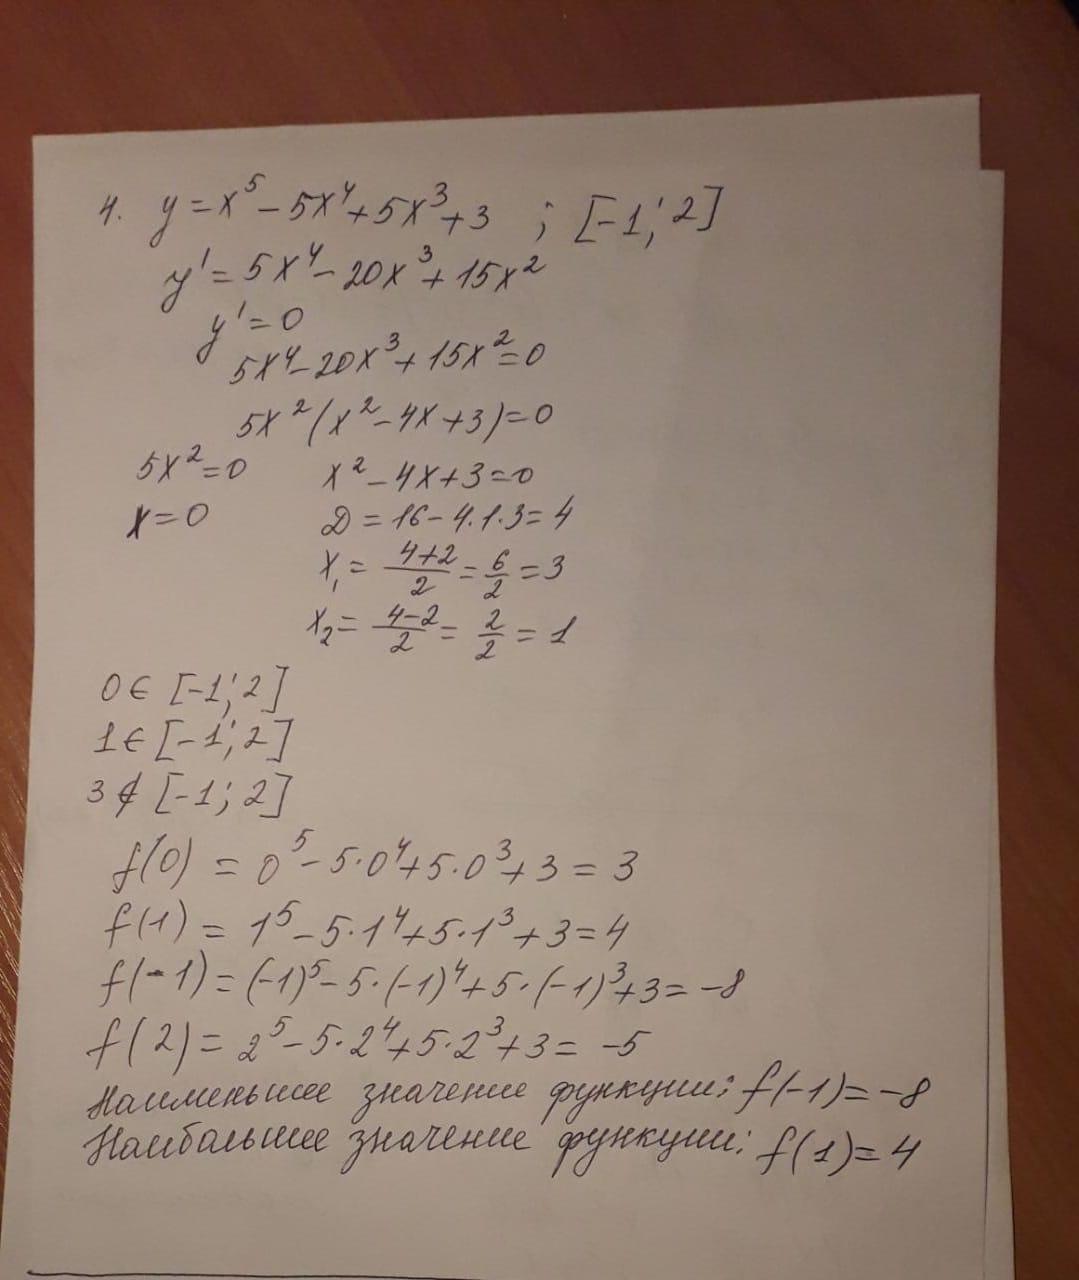 4. y = x⁵ - 5x⁴ + 5x³ + 3 ; [-1; 2]
y' = 5x⁴ - 20x³ + 15x²
y' = 0
5x⁴ - 20x³ + 15x² = 0
5x²(x² - 4x + 3) = 0
5x² = 0 x² - 4x + 3 = 0
x = 0 D = 16 - 4·1·3 = 4
x₁ = (4+2)/2 = 6/2 = 3
x₂ = (4-2)/2 = 2/2 = 1
0 ∈ [-1; 2]
1 ∈ [-1; 2]
3 ∉ [-1; 2]
f(0) = 0⁵ - 5·0⁴ + 5·0³ + 3 = 3
f(1) = 1⁵ - 5·1⁴ + 5·1³ + 3 = 4
f(-1) = (-1)⁵ - 5·(-1)⁴ + 5·(-1)³ + 3 = -8
f(2) = 2⁵ - 5·2⁴ + 5·2³ + 3 = -5
Наименьшее значение функции: f(-1) = -8
Наибольшее значение функции: f(1) = 4